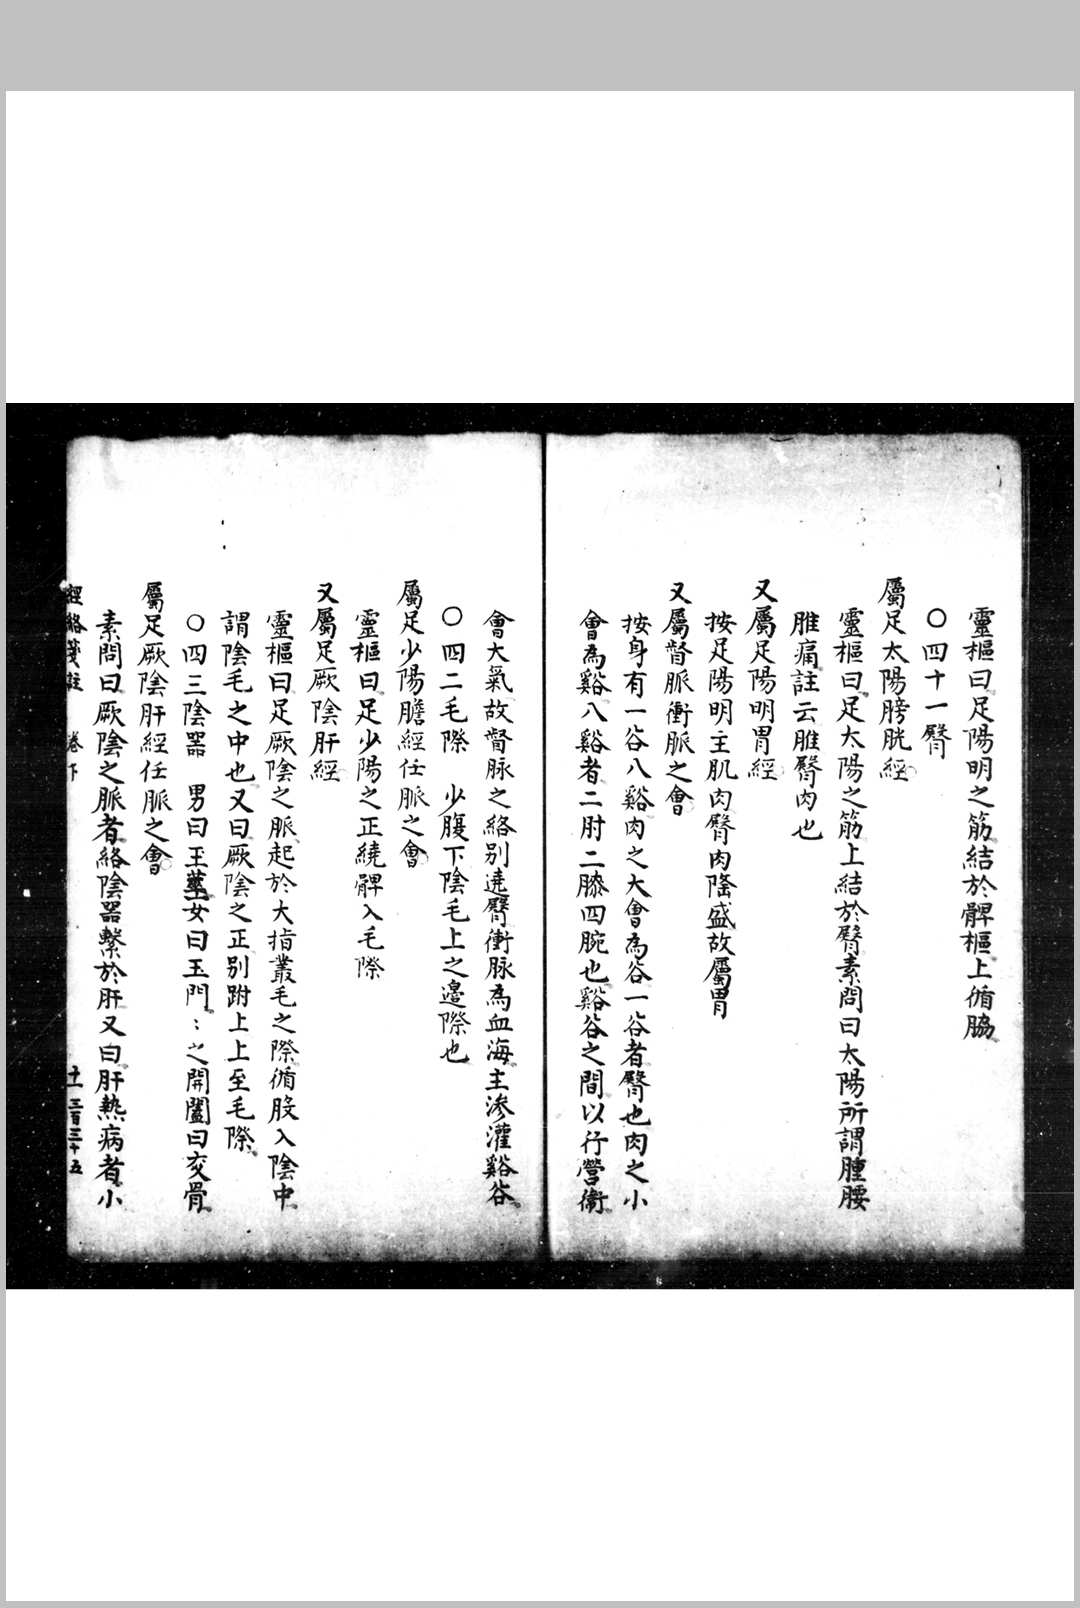 靈樞曰足陽明之筋結於髀樞上循脇
〇四十一臀
屬足太陽膀胱經
靈樞曰足太陽之筋上結於臀素問曰太陽所謂腫腰
脽痛註云脽臀肉也
又屬足陽明胃經
按足陽明主肌肉臀肉隆盛故屬胃
又屬督脈衝脈之會
按身有一谷八谿肉之大會為谷一谷者臀也肉之小
會為谿八谿者二肘二膝四腕也谿谷之間以行營衛
會大氣故督脉之絡別遶臀衝脉為血海主渗灌谿谷
〇四二毛際　少腹下陰毛上之邉際也
屬足少陽膽經任脈之會
靈樞曰足少陽之正繞髀入毛際
又屬足厥陰肝經
靈樞曰足厥陰之脈起於大指叢毛之際循股入陰中
謂陰毛之中也又曰厥陰之正別跗上上至毛際
〇四三陰器　男曰玉莖女曰玉門：之開闔曰交骨
屬足厥陰肝經任脈之會
素問曰厥陰之脈者絡陰器繫於肝又曰肝熱病者小
經絡箋註　卷下　十一　三百三十五